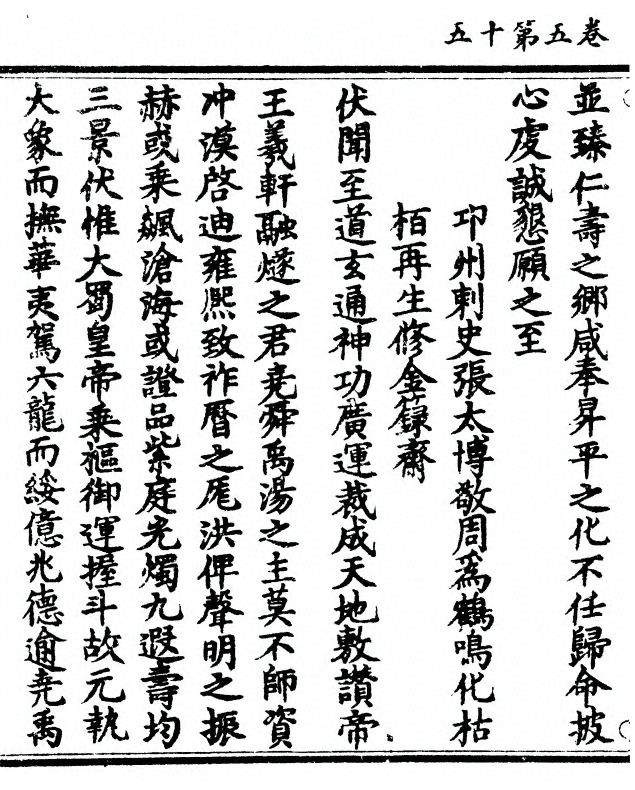 卷五第十五
並臻仁壽之鄉咸奉昇平之化不任歸命披
心虔誠懇願之至
卭州刺史張太博敬周為鶴鳴化枯
栢再生修金籙齋
伏聞至道玄通神功廣運裁成天地敷讚帝
王羲軒融燧之君堯舜禹湯之主莫不師資
沖漠啓迪雍熈致祚曆之厖洪俾聲明之振
赫或乘飆滄海或證品紫庭光燭九遐壽均
三景伏惟大蜀皇帝乘樞御運握斗故元執
大象而撫華夷駕六龍而綏億兆德逾堯禹